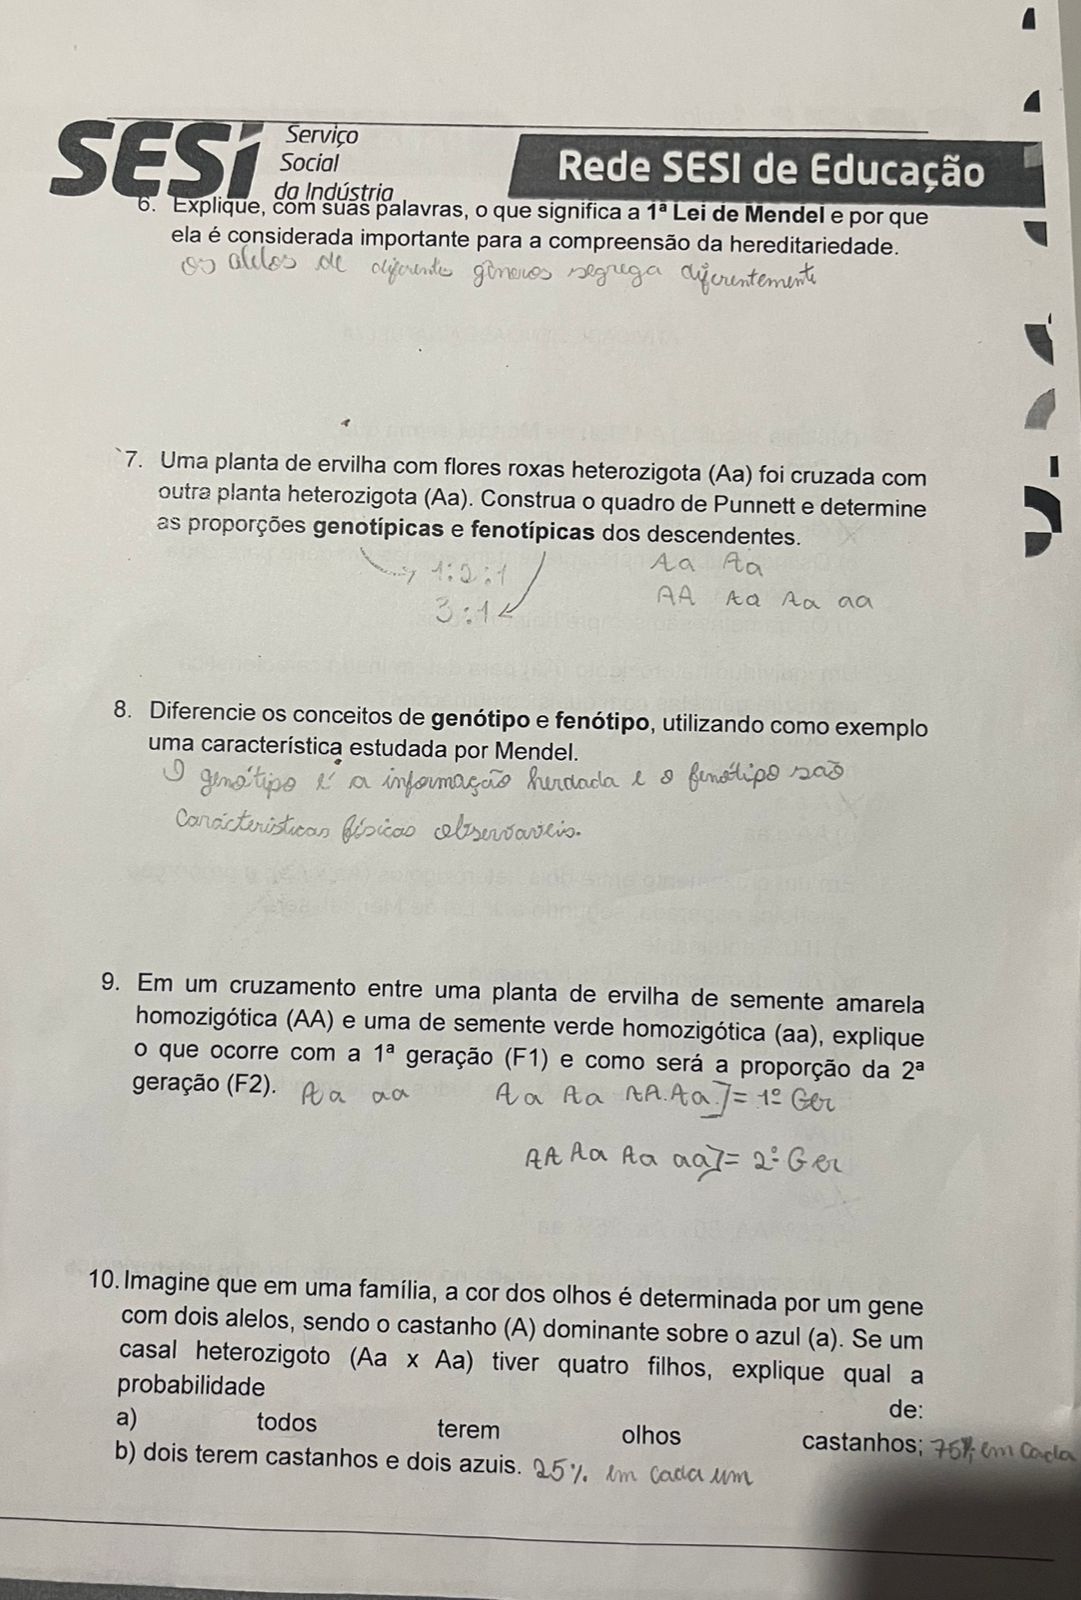 SESI Serviço
Social
da Indústria
Rede SESI de Educação
6. Explique, com suas palavras, o que significa a 1ª Lei de Mendel e por que
ela é considerada importante para a compreensão da hereditariedade.
os alelos de diferentes gêneros segrega diferentemente
7. Uma planta de ervilha com flores roxas heterozigota (Aa) foi cruzada com
outra planta heterozigota (Aa). Construa o quadro de Punnett e determine
as proporções genotípicas e fenotípicas dos descendentes.
1:2:1
3:1
Aa Aa
AA Aa Aa aa
8. Diferencie os conceitos de genótipo e fenótipo, utilizando como exemplo
uma característica estudada por Mendel.
O genótipo é a informação herdada e o fenótipo são
Carácteristicas físicas observaveis.
9. Em um cruzamento entre uma planta de ervilha de semente amarela
homozigótica (AA) e uma de semente verde homozigótica (aa), explique
o que ocorre com a 1ª geração (F1) e como será a proporção da 2ª
geração (F2). Aa aa Aa Aa AA.Aa.]= 1º Ger
AA Aa Aa aa]= 2º Ger
10. Imagine que em uma família, a cor dos olhos é determinada por um gene
com dois alelos, sendo o castanho (A) dominante sobre o azul (a). Se um
casal heterozigoto (Aa x Aa) tiver quatro filhos, explique qual a
probabilidade de:
a) todos terem olhos castanhos; 75% em cada
b) dois terem castanhos e dois azuis. 25% em cada um